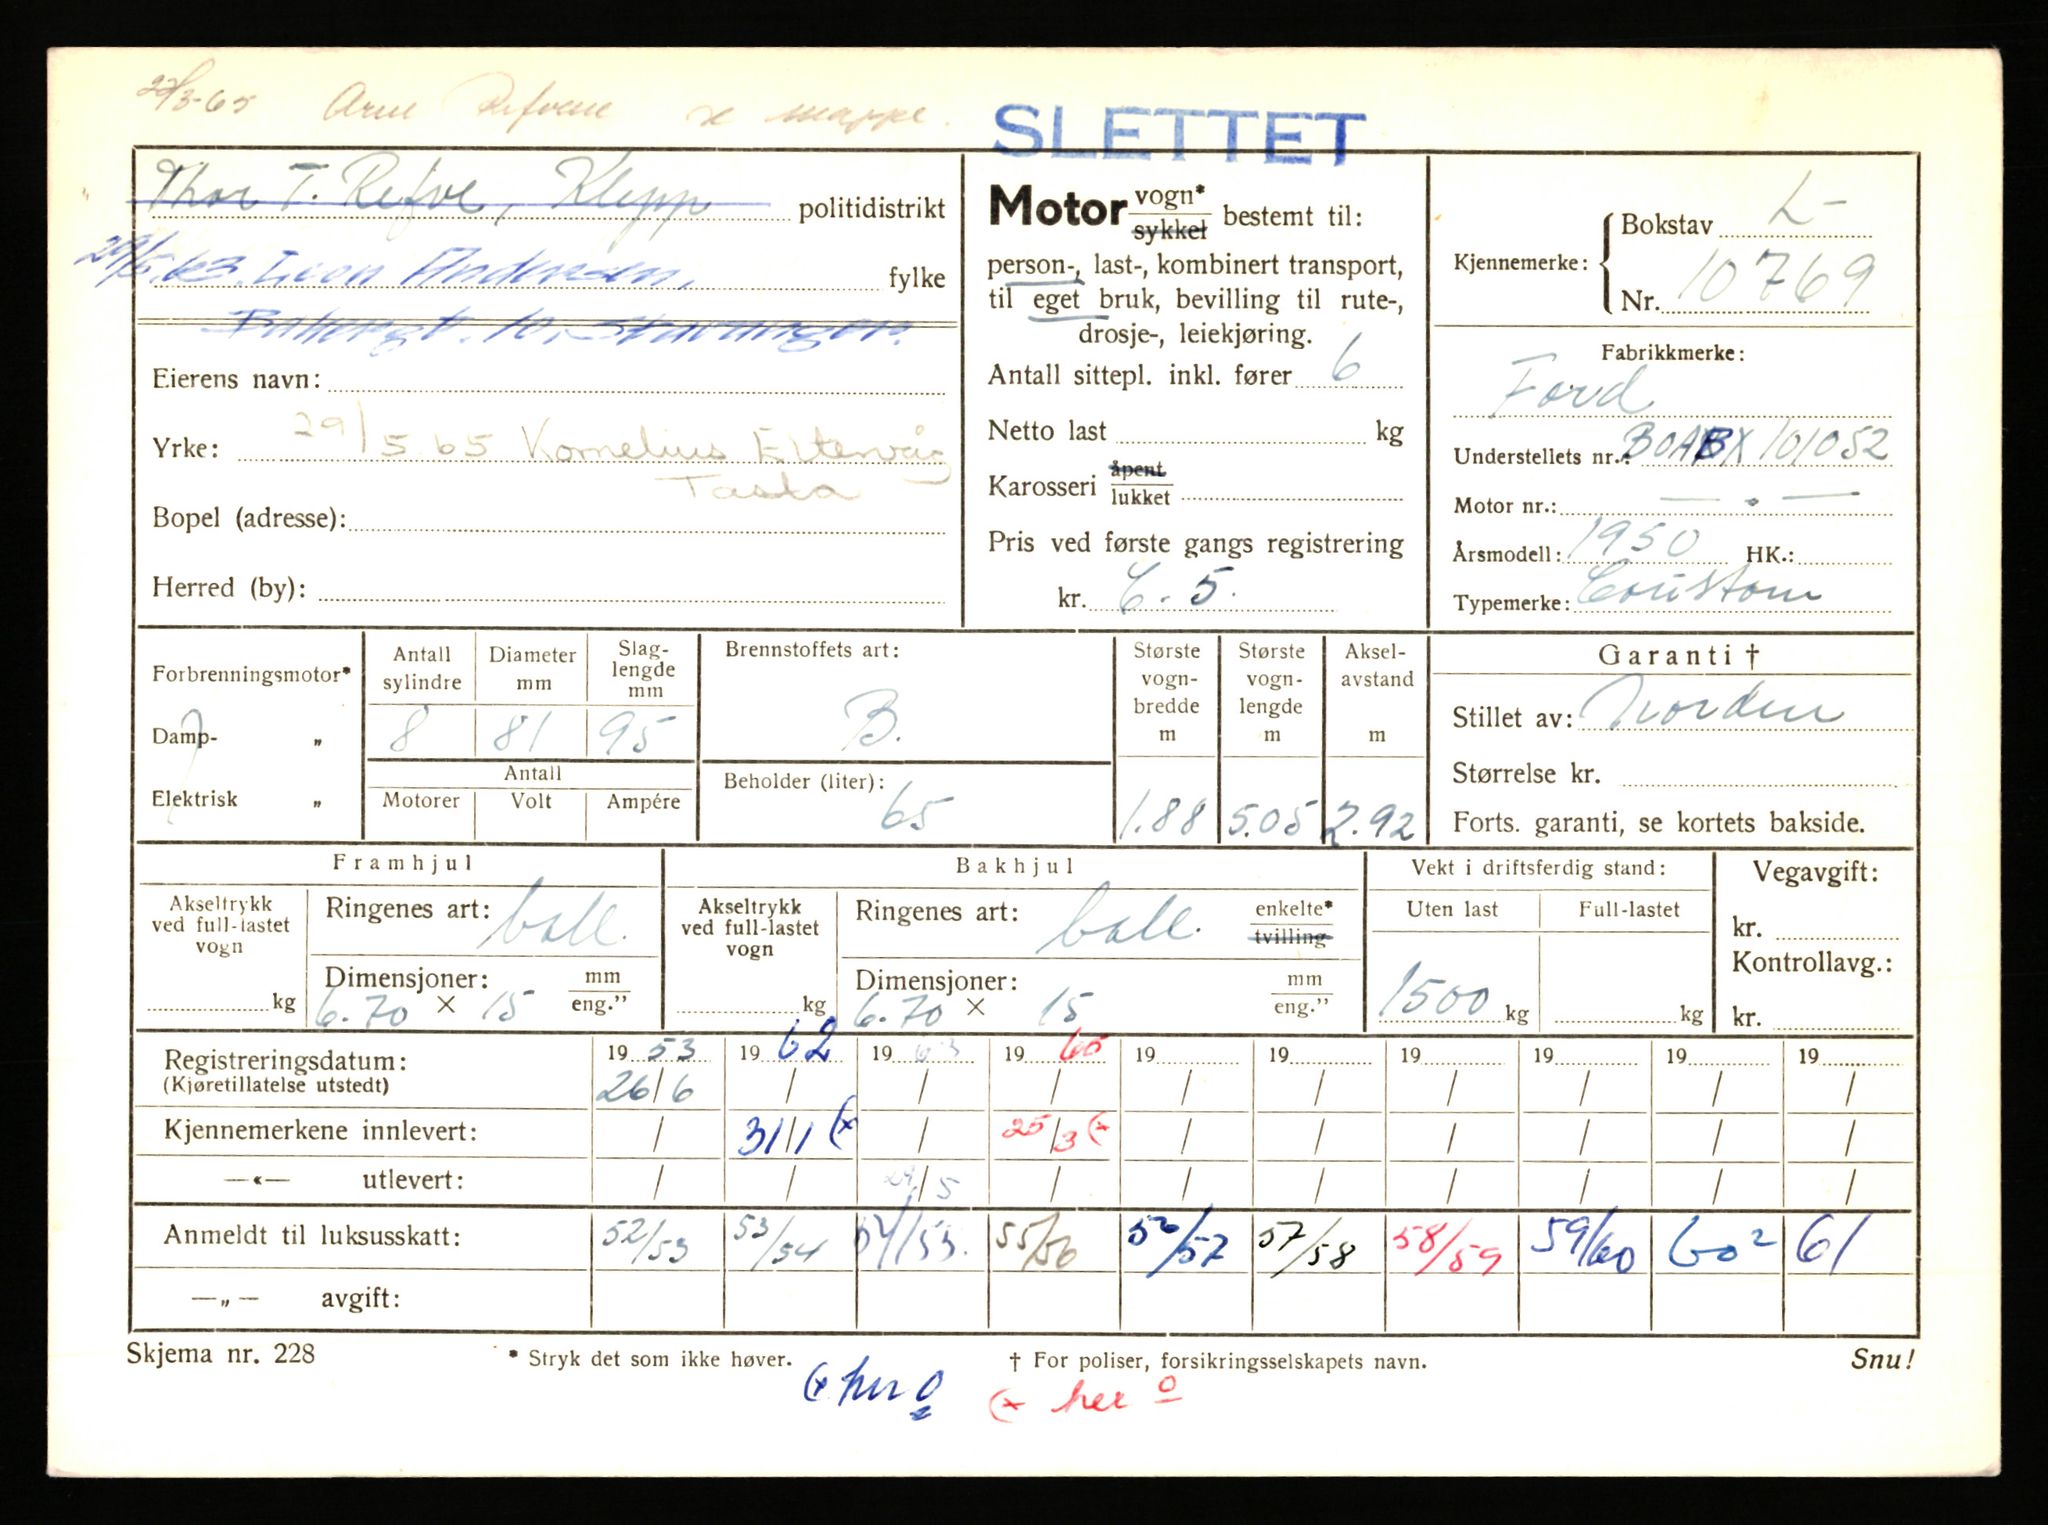 22/3-65 Arne Refvem se mappe.
SLETTET
Thor T. Refve, Klepp politidistrikt
29/5.63. Leon Andersen, fylke
10, Stavanger.
Eierens navn:
Yrke: 29/5 65 Kornelius Eltervåg
Tasta
Bopel (adresse):
Herred (by):
Motor vogn* sykkel bestemt til:
person-, last-, kombinert transport,
til eget bruk, bevilling til rute-,
drosje-, leiekjøring.
Antall sittepl. inkl. fører 6
Netto last kg
Karosseri åpent lukket
Pris ved første gangs registrering
kr. C. 5.
Kjennemerke: Bokstav L-
Nr. 10769
Fabrikkmerke:
Ford
Understellets nr.: BOABX 101052
Motor nr.: — . —
Årsmodell: 1950 HK.:
Typemerke: Coustom
Forbrenningsmotor*
Damp- „
Elektrisk „
Antall sylindre Diameter mm Slaglengde mm
8 81 95
Antall
Motorer Volt Ampére
Brennstoffets art:
B.
Beholder (liter):
65
Største vognbredde m Største vognlengde m Akselavstand m
1.88 5.05 2.92
Garanti †
Stillet av: Norden
Størrelse kr.
Forts. garanti, se kortets bakside.
Framhjul
Akseltrykk ved full-lastet vogn kg
Ringenes art: ball.
Dimensjoner: mm eng."
6.70 × 15
Bakhjul
Akseltrykk ved full-lastet vogn kg
Ringenes art: ball. enkelte* tvilling
Dimensjoner: mm eng."
6.70 × 15
Vekt i driftsferdig stand:
Uten last Full-lastet
1500 kg kg
Vegavgift:
kr.
Kontrollavg.:
kr.
Registreringsdatum: 19 53 19 62 19 63 19 65 19 19 19 19 19 19
(Kjøretillatelse utstedt) 26/6 / / / / / / / / /
Kjennemerkene innlevert: / 31/1 (x / 25/3 (x / / / / / /
—«— utlevert: / / 29/5 / / / / / / /
Anmeldt til luksusskatt: 52/53 53/54 54/55. 55/56 56/57 57/58 58/59 59/60 60² 61
—„— avgift:
Skjema nr. 228 * Stryk det som ikke høver. † For poliser, forsikringsselskapets navn. Snu!
(x her o (x her o